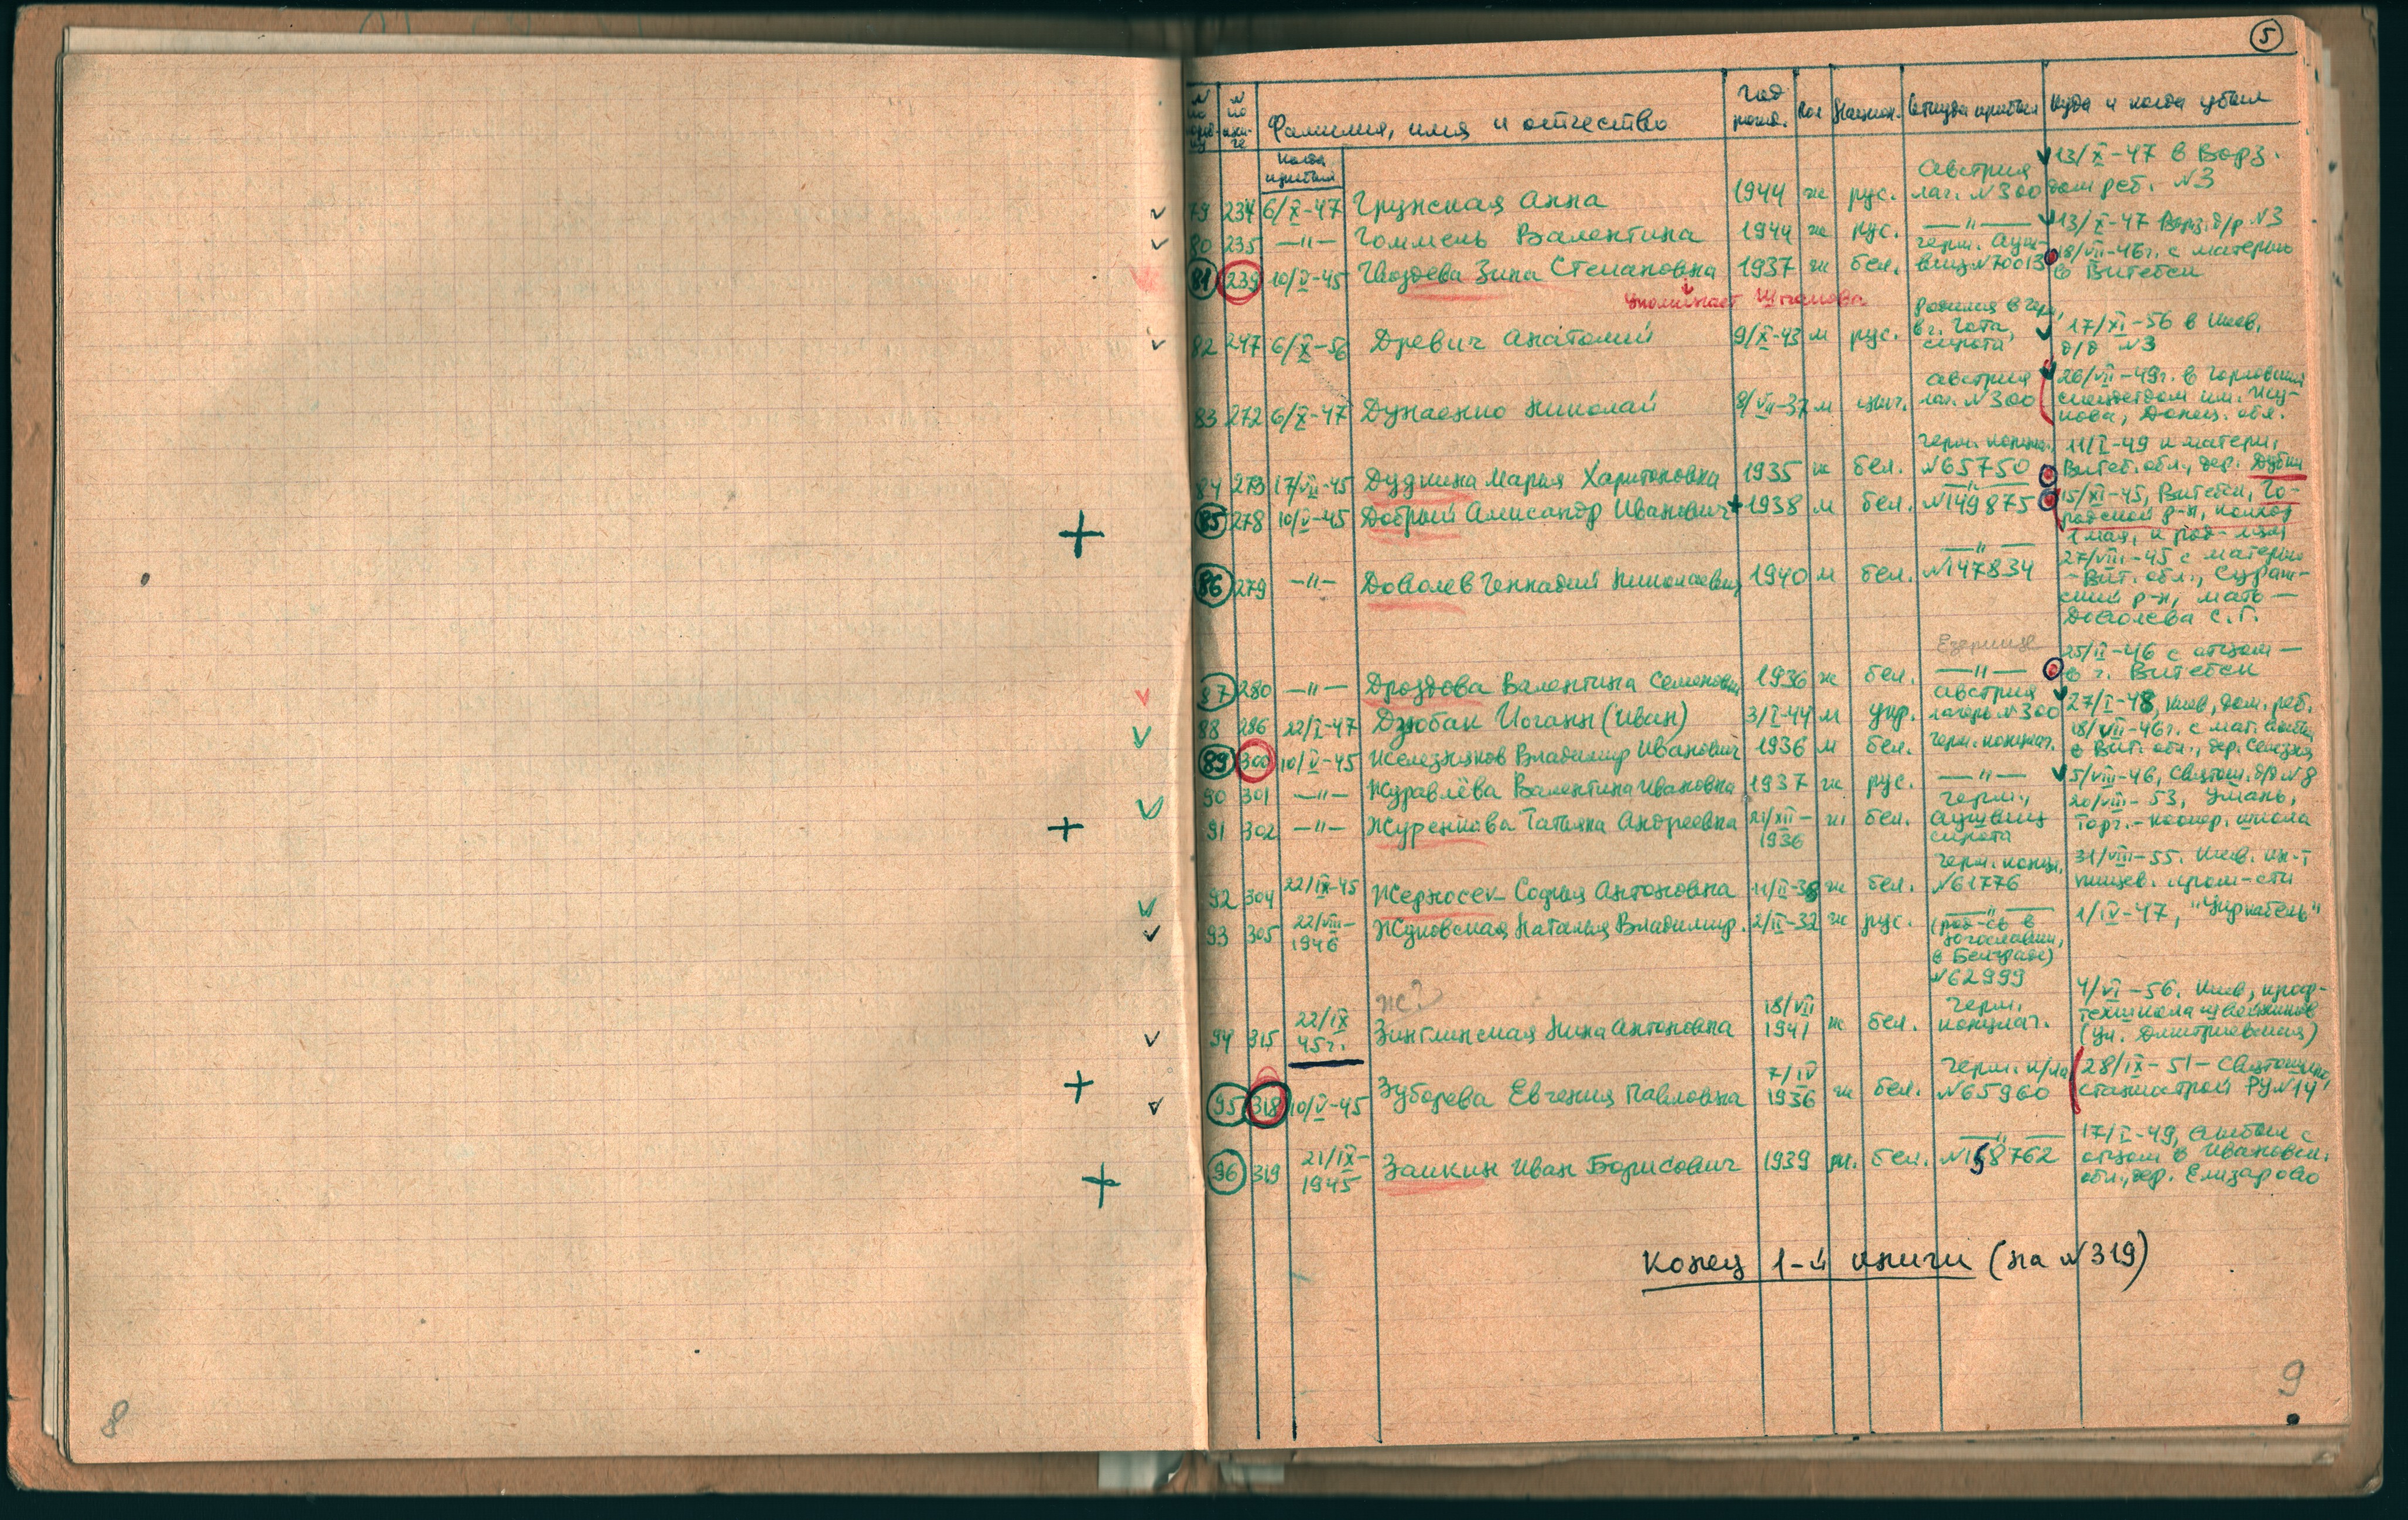 5
№ по поряд-ку | № по кни-ге | Фамилия, имя и отчество | Год рожд. | Пол | Национ. | Откуда прибыл | Куда и когда убыл
Когда прибыл
79 234 6/X-47 Грунская Анна 1944 ж рус. Австрия лаг. №300 13/X-47 в Ворз. дом реб. №3
80 235 —"— Гоммель Валентина 1944 ж рус. —"— 13/X-47 Ворз. д/р №3
81 239 10/V-45 Гвоздева Зина Степановна 1937 ж бел. герм. Аушвиц №70013 18/VII-46г. с матерью в Витебск
упоминает Шпанова
82 247 6/X-56 Древич Анатолий 9/X-43 м рус. Родился в Герм., в г. Гота, сирота 17/XI-56 в Киев. д/д №3
83 272 6/X-47 Дунаенко Николай 8/VII-37 м Австрия лаг. №300 26/VII-49г. в Горловский спецдетдом им. Донец. обл.
84 273 17/VII-45 Дудкина Мария Харитоновна 1935 ж бел. Герм. концл. №65750 11/I-49 к матери, Витеб. обл., дер. Дубки
85 278 10/V-45 Добрый Александр Иванович + 1938 м бел. —"— №149875 15/XI-45, Витебск, Го-родской р-н, колхоз 1 мая, к род-лям
86 279 —"— Доволев Геннадий Николаевич 1940 м бел. —"— №147834 27/VIII-45 с матерью - Вит. обл., Сураж-ский р-н, мать — Доволева С.Г.
Езерище
87 280 —"— Дроздова Валентина Семеновн 1936 ж бел. —"— 25/II-46 с отцом — в г. Витебск
88 296 22/I-47 Дзюбак Иоганн (Иван) 3/I-44 м укр. Австрия лагерь №300 27/I-48, Киев, дом. реб.
89 300 10/V-45 Железняков Владимир Иванович 1936 м бел. Герм. концлаг. 18/VII-46г. с мат. в Вит. обл., дер.
90 301 —"— Журавлёва Валентина Ивановна 1937 ж рус. —"— 5/VIII-46, Святош. д/д №8
91 302 —"— Журенкова Татьяна Андреевна 21/XII-1936 ж бел. Герм., Аушвиц сирота 20/VIII-53, Умань, Торг.-коопер. школа
92 304 22/IX-45 Жерносек Софья Антоновна 11/II-38 ж бел. Герм. концл. №61776 31/VIII-55. Киев. ин-т пищев. пром-сти
93 305 22/VIII-1946 Жуковская Наталья Владимир. 2/II-32 ж рус. —"— (род-сь в Югославии, в Белграде) №62999 1/IV-47, "Укркабель"
ж?
94 315 22/IX 45г. Зинглинская Нина Антоновна 18/VII 1941 ж бел. Герм. концлаг. 4/VI-56. Киев, проф-техшкола швейников (ул. Дмитриевская)
95 318 10/V-45 Зуборева Евгения Павловна 7/IV 1936 ж бел. Герм. к/ла №65960 28/IX-51 - Святошино, станкострой РУ №14
96 319 21/IX-1945 Заикин Иван Борисович 1939 м. бел. —"— №158762 17/I-49, выбыл с отцом в Ивановск. обл., дер. Елизарово
Конец 1-й книги (на №319)
8
9